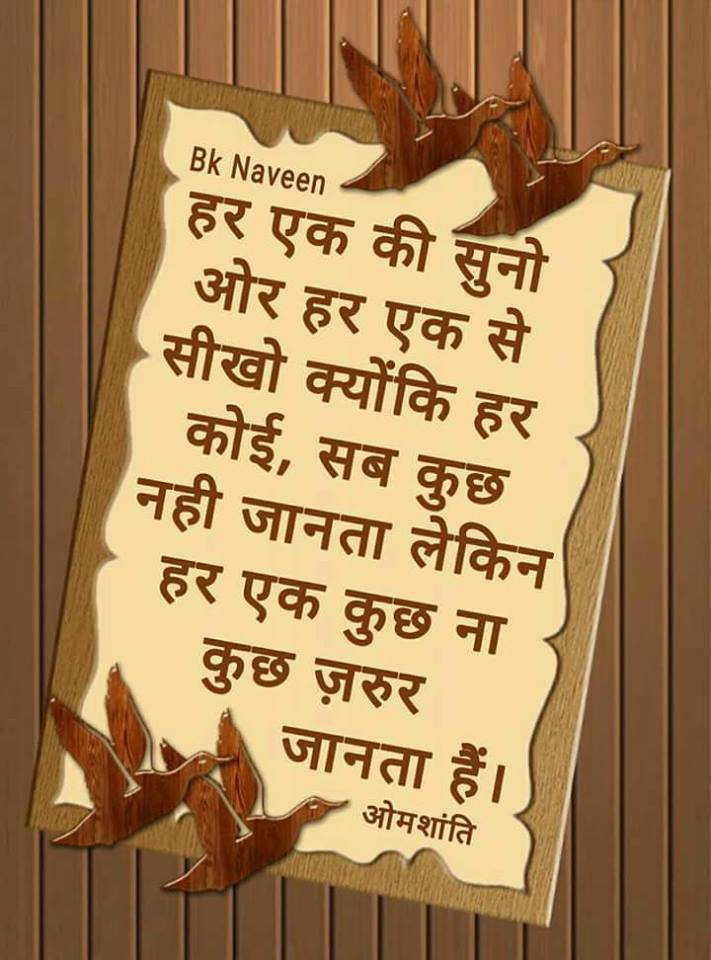 Bk Naveen
हर एक की सुनो
ओर हर एक से
सीखो क्योंकि हर
कोई, सब कुछ
नही जानता लेकिन
हर एक कुछ ना
कुछ ज़रुर
जानता हैं।
ओमशांति